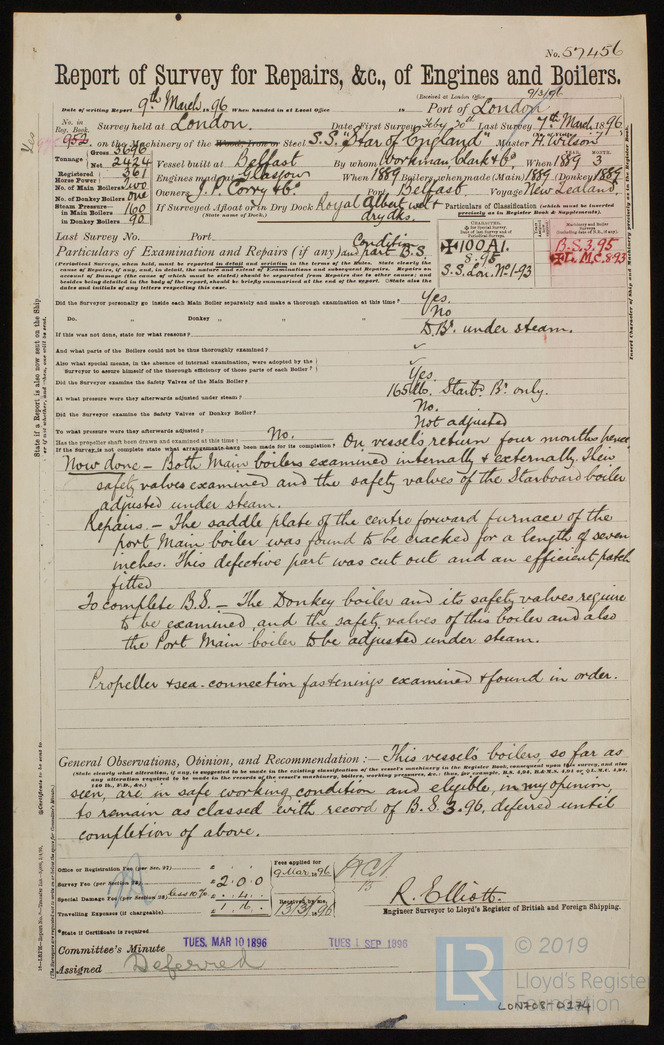 No. 57456
Report of Survey for Repairs, &c., of Engines and Boilers.
9/3/96
(Received at London Office
Date of writing Report 9th March 1896 When handed in at Local Office 18 Port of London
No. in Reg. Book. Survey held at London. Date, First Survey Feby 20th Last Survey 7th March 1896
952 on the Machinery of the Wood, Iron or Steel S.S. "Star of England" Master H. Wilson
Tonnage Gross 3696
Net 2424
Vessel built at Belfast By whom Workman Clark & Co When 1889 3
YEAR. MONTH.
Registered Horse Power 361 Engines made at Glasgow When 1889 Boilers, when made (Main) 1889 (Donkey) 1889
No. of Main Boilers two
No. of Donkey Boilers one
Owners J.P. Corry & Co Port Belfast Voyage New Zealand
Steam Pressure in Main Boilers 160
in Donkey Boilers 90
If Surveyed Afloat or in Dry Dock Royal Albert wet & dry dks.
(State name of Dock.)
Particulars of Classification (which must be inserted precisely as in Register Book & Supplements).
Last Survey No. Port
Particulars of Examination and Repairs (if any) Condition and part B.S.
100A1.
8.95
S.S. Lon. No 1-93
B.S. 3.95
L.M.C. 8.93
Did the Surveyor personally go inside each Main Boiler separately and make a thorough examination at this time? Yes.
Do. Donkey " " " No
If this was not done, state for what reasons? D.Br. under steam.
And what parts of the Boilers could not be thus thoroughly examined?
Also what special means, in the absence of internal examination, were adopted by the Surveyor to assure himself of the thorough efficiency of those parts of each Boiler?
Did the Surveyor examine the Safety Valves of the Main Boiler? Yes
At what pressure were they afterwards adjusted under steam? 165 lbs. Starbd. Br. only.
Did the Surveyor examine the Safety Valves of Donkey Boiler? No.
To what pressure were they afterwards adjusted? Not adjusted
Has the propeller shaft been drawn and examined at this time? No.
If the Survey is not complete state what arrangements have been made for its completion? On vessels return four months hence
Now done – Both Main boilers examined internally & externally. Their
safety valves examined and the safety valves of the Starboard boiler
adjusted under steam.
Repairs. – The saddle plate of the centre forward furnace of the
port Main boiler was found to be cracked for a length of seven
inches. This defective part was cut out and an efficient patch
fitted
To complete B.S. – The Donkey boiler and its safety valves require
to be examined, and the safety valves of this boiler and also
the Port Main boiler to be adjusted under steam.
Propeller & sea-connection fastenings examined & found in order.
General Observations, Opinion, and Recommendation:– This vessel's boilers, so far as
seen, are in safe working condition and eligible, in my opinion,
to remain as classed with record of B.S. 3.96. deferred until
completion of above.
Office or Registration Fee (per Sec. 27) £
Survey Fee (per Section 28) £ 2.0.0
Special Damage Fee (per Section 28) less 10% £ .4.
Travelling Expenses (if chargeable) £ 1.16.
Fees applied for
9 Mar. 1896
Received by me
13/3/1896
R. Elliott.
Engineer Surveyor to Lloyd's Register of British and Foreign Shipping.
*State if Certificate is required
Committee's Minute TUES. MAR 10 1896 TUES 1 SEP 1896
Assigned Deferred
LR
© 2019
Lloyd's Register
Foundation
LON708-0274